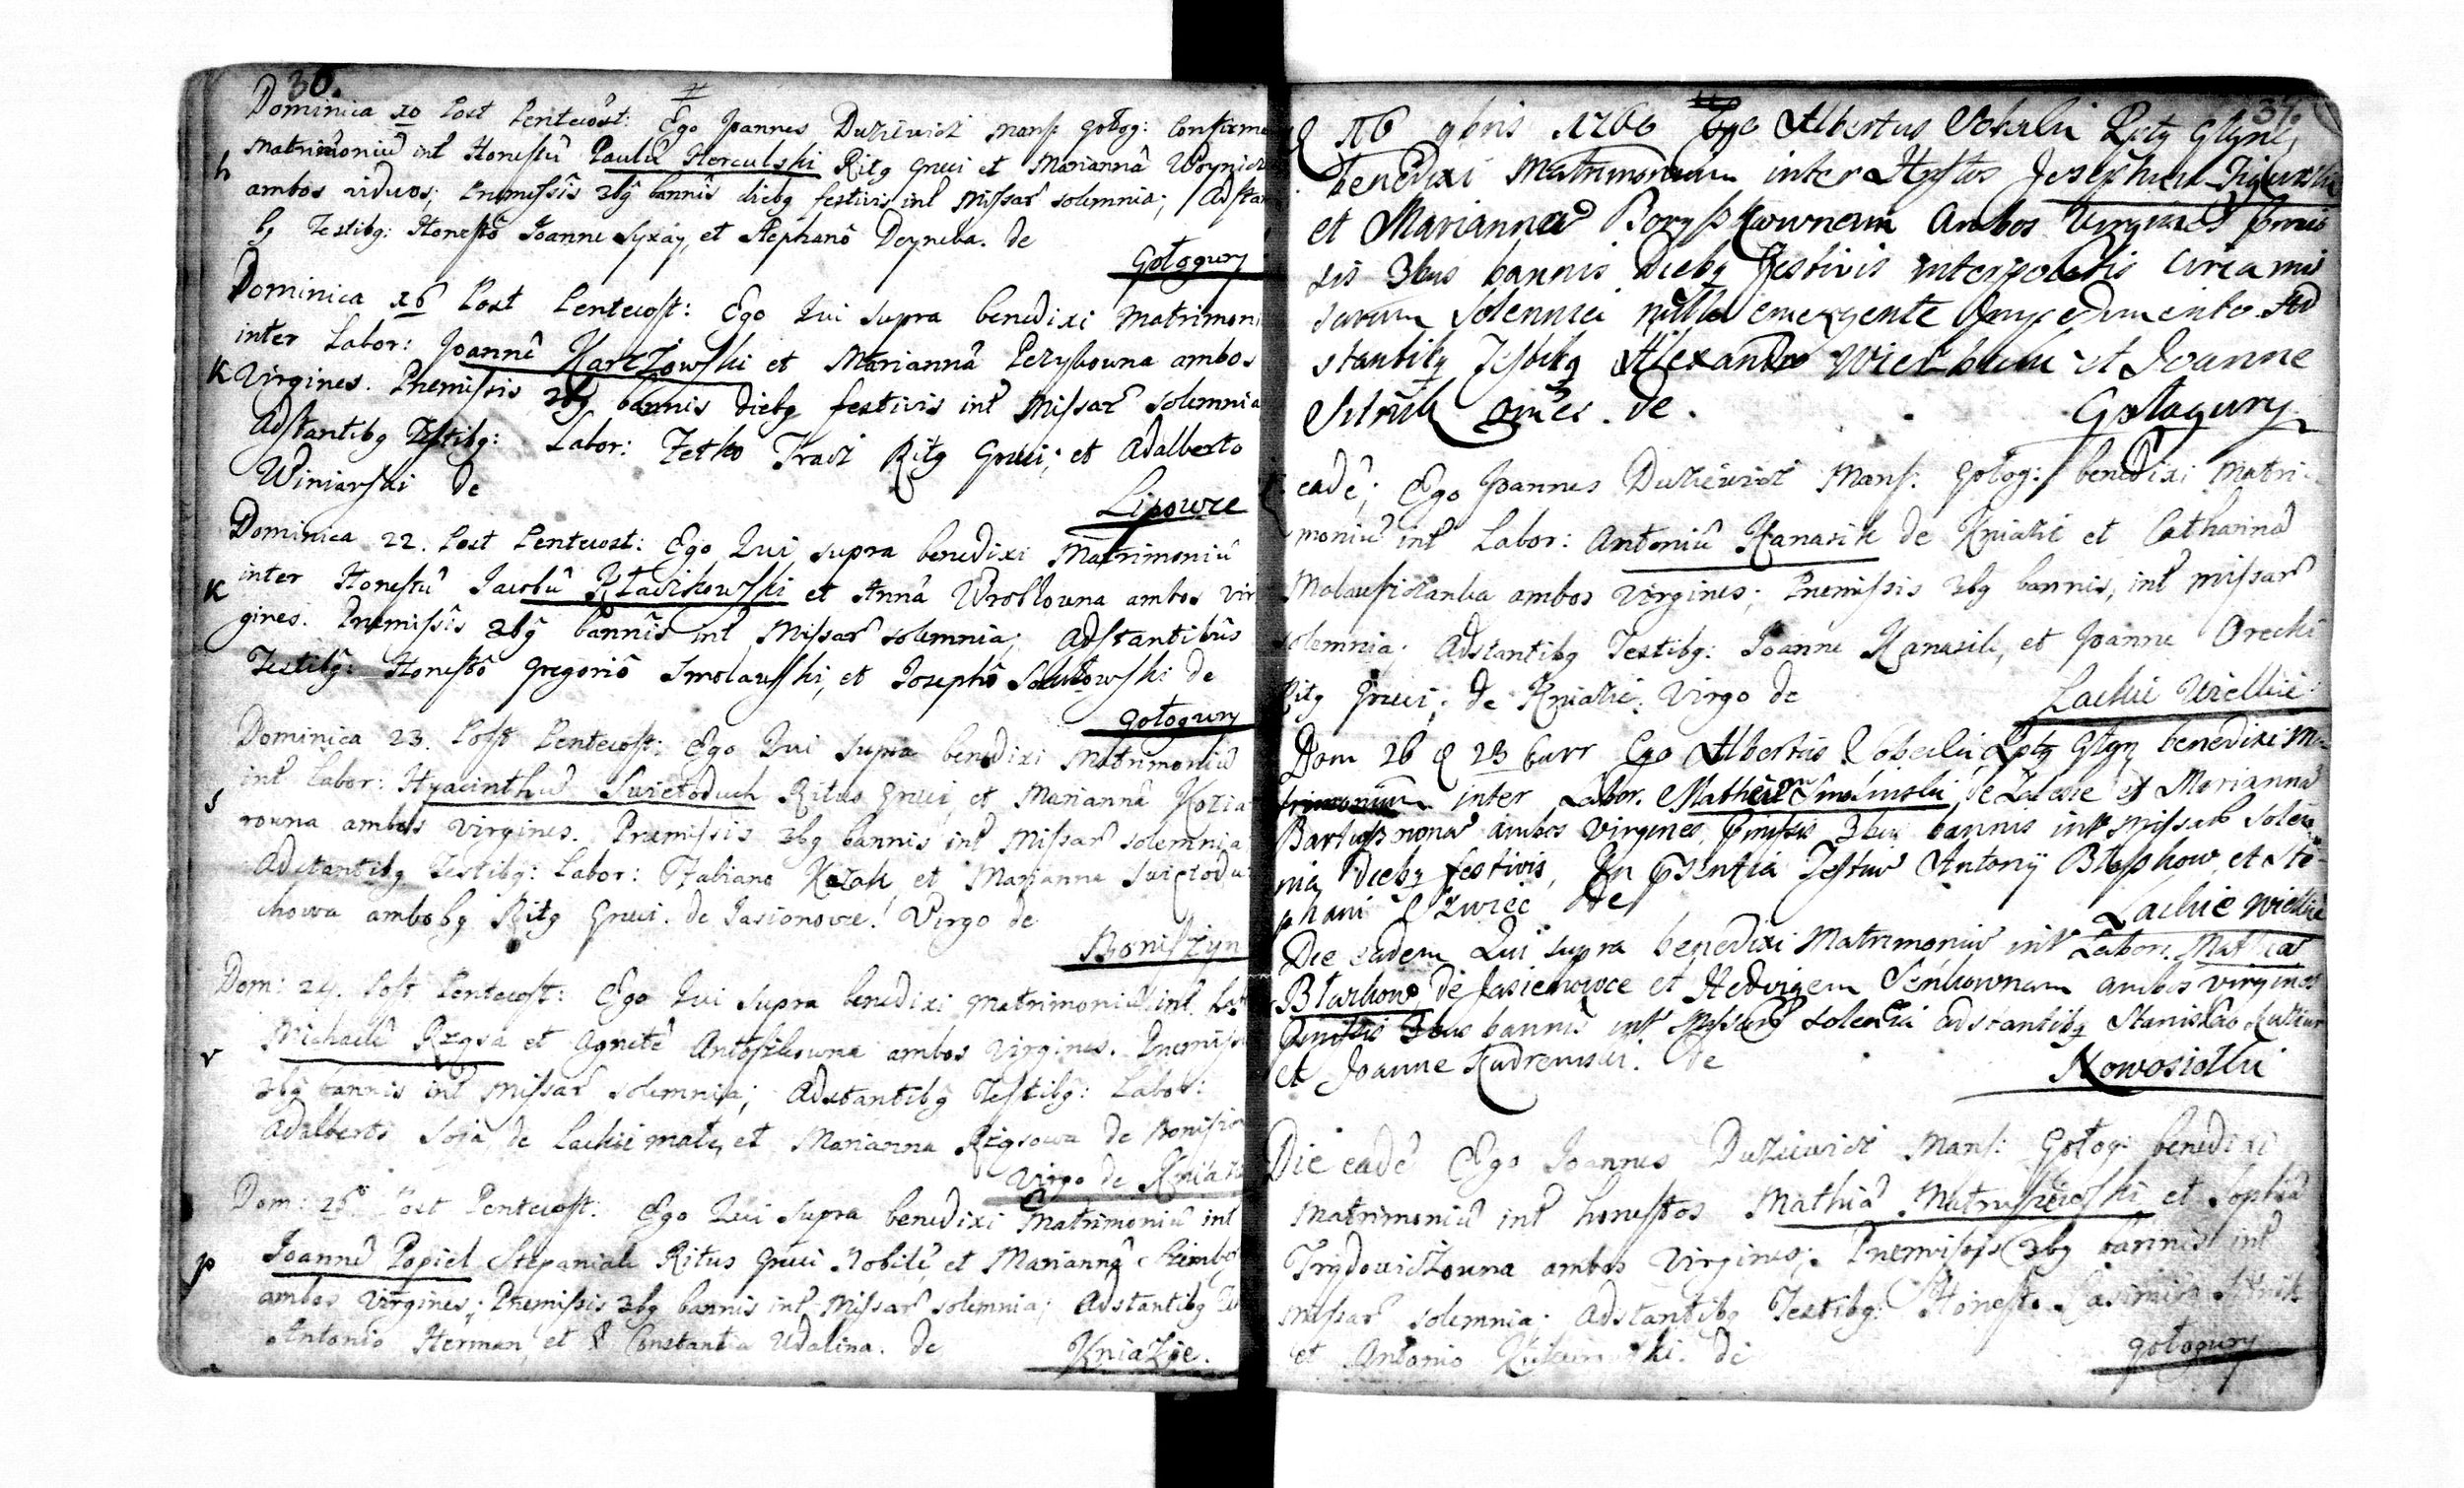 36.
Dominica 10 Post Pentecost: Ego Joannes Duziewicz Mans: Gołog: Confirma
Matrimoniû int Honestû Paulû Herculski Ritq Græci et Mariannâ Woynicz
h
ambos viduos; Præmissîs 3bq bannîs diebq festivis int Missar solemnia; Adstan
bq Testibq: Honestô Joanne Syxay, et Stephanô Deyneka. de
Gołogury
Dominica 16 Post Pentecost: Ego Qui supra benedixi Matrimoni
inter Labor: Joannê Karczowski et Mariannâ Pezyskowna ambos
K Virgines. Præmissis 3bq bannis diebq festivis int Missar solemnia
Adstantibq Testibq: Labor: Fetko Tkacz Ritq Græci; et Adalberto
Winiarski de
Lipowce
Dominica 22. Post Pentecost: Ego Qui supra benedixi Matrimoniû
inter Honestû Jacobû Kładzikowski et Annâ Wroblowna ambos vir
K
gines. Præmissîs 3bq bannîs int Missar solemnia; Adstantibus
Testibq: Honestô Gregoriô Smolawski, et Josephô de
Gołogury
Dominica 23. Post Pentecost: Ego Qui supra benedixi Matrimoniû
int Labor: Hyacinthû Swietoduch Ritus Græci, et Mariannâ Kozia
s
rowna ambos virgines. Præmissis 3bq bannis int Missar solemnia
Adstantibq Testibq: Labor: Fabiano Kozak et Marianna Swiętodu
chowa ambobq Ritq Græci. de Jasionowce! Virgo de
Boniszyn
Dom: 24. Post Pentecost: Ego Qui supra benedixi Matrimoniû int Lab
Michaelê Rzgsa et Agnetê Antoszkowna ambos virgines. Præmissi
r
3bq bannis int Missar solemnia; Adstantibq Testibq: Labor:
Adalberto Soja de Lackie małe, et Marianna Rzgsowa de Boniszyn
Virgo de Kniaże
Dom: 25 Post Pentecost: Ego Qui supra benedixi Matrimoniû int
Joannê Popiel Stepaniak Ritus Græci Nobilê, et Mariannâ
p
ambos Virgines; Præmissis 3bq bannis int Missar solemnia; Adstantibq Tes
Antonio Herman, et Constantia Udalina. de Kniaźie.
37.
16 9bris 1766 Ego Albertus Sokalu Ppty Glyne,
benedixi Matrimonium inter Hnstos Josephum
et Mariannam Boryszkownam Ambos Virgines præmis
sis 3bus bannis diebq festivis interpolatis circa mis
sarum solemnia nullo emergente impedimento. Ad
stantibq Testibq Alexandro Wierzbicki et Joanne
Sitnik oes. de . . Gołogury
eadê; Ego Joannes Duziewicz Mans: Gołog: benedixi Matri
moniû int Labor: Antoniû Kanasik de Kniaźie et Catharinâ
ambos virgines; Præmissis 3bq bannis, int missar
solemnia; Adstantibq Testibq: Joanne Kanasik, et Joanne Orecki
Ritq Græci; de Kniaźie. Virgo de Lackie Wielkie
Dom 26 Ego Albertus benedixi M
trimonium inter Labor. de et Marianna
ambos virgines, præmissis 3bus bannis int missar solem
nia, diebq festivis, In præsentia Testiû Antonij Błaszkow, et Ste
phani Szwiec de Lackie Wielkie
Die eadem Qui supra benedixi Matrimoniû int Labor. Mathiâ
Błaszkow, de Jasienowce et Hedvigem Senkownam ambos virgines
præmissis 3bus bannis int Missar solemnia adstantibq Stanislao
et Joanne Kudrewski. de Nowosiołki
Die eadê Ego Joannes Duziewicz Mans: Gołog: benedixi
Matrimoniû int honestos Mathiâ Matuszewski et Sophiâ
Trydowiczowna ambos Virgines; Præmissis 3bq bannis int
missar solemnia. Adstantibq Testibq: Honesto Casimiro Sitnik
et Antonio de Gołogury